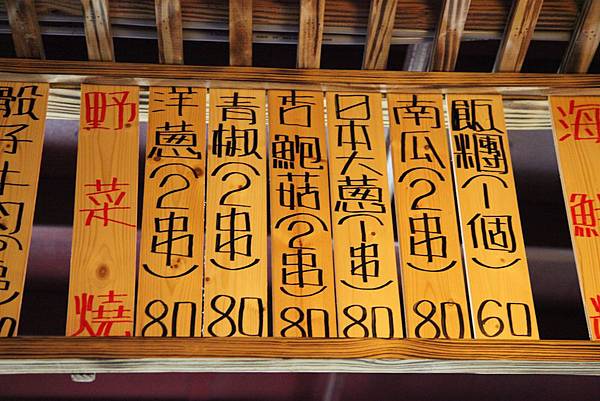 骰子牛肉(2串)
野菜燒
洋蔥(2串)80
青椒(2串)80
杏鮑菇(2串)80
日本大蔥(1串)80
南瓜(2串)80
飯糰(1個)60
海鮮